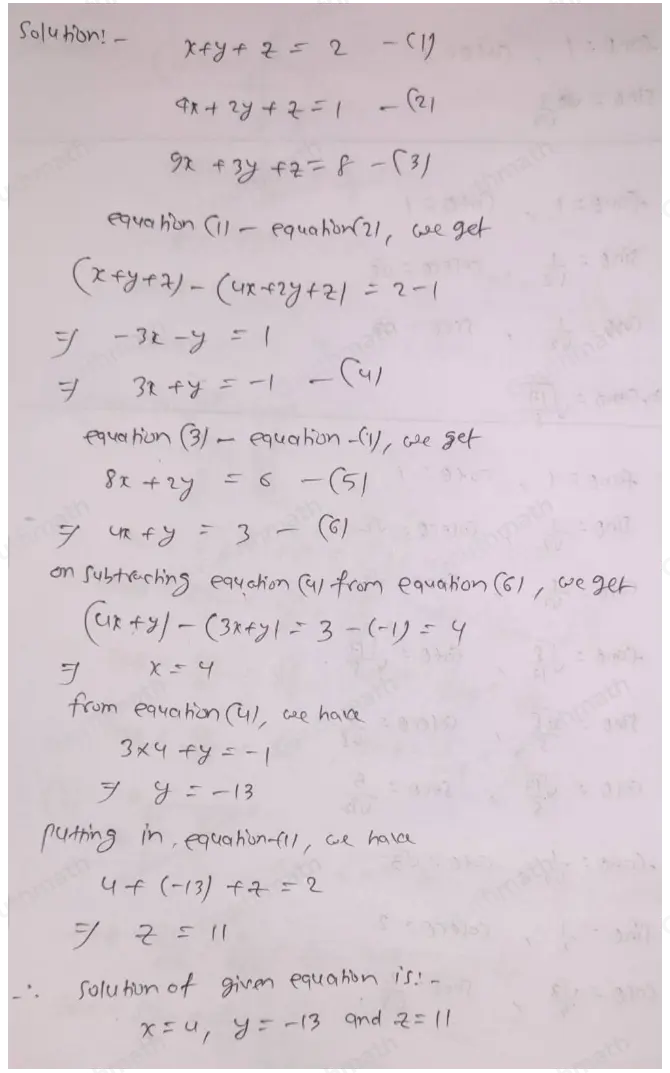 Solution:-
x+y+z = 2 -(1)
4x+2y+z=1 -(2)
9x+3y+z=8 -(3)
equation (1) - equation(2), we get
(x+y+z)-(4x+2y+z) = 2-1
⇒ -3x-y = 1
⇒ 3x+y = -1 -(4)
equation (3) - equation-(1), we get
8x+2y = 6 -(5)
⇒ 4x+y = 3 -(6)
on subtracting equation (4) from equation (6), we get
(4x+y)-(3x+y) = 3-(-1) = 4
⇒ x = 4
from equation (4), we have
3x4+y=-1
⇒ y = -13
putting in, equation-(1), we have
4+(-13)+z=2
⇒ z = 11
∴ solution of given equation is:-
x=4, y=-13 and z=11